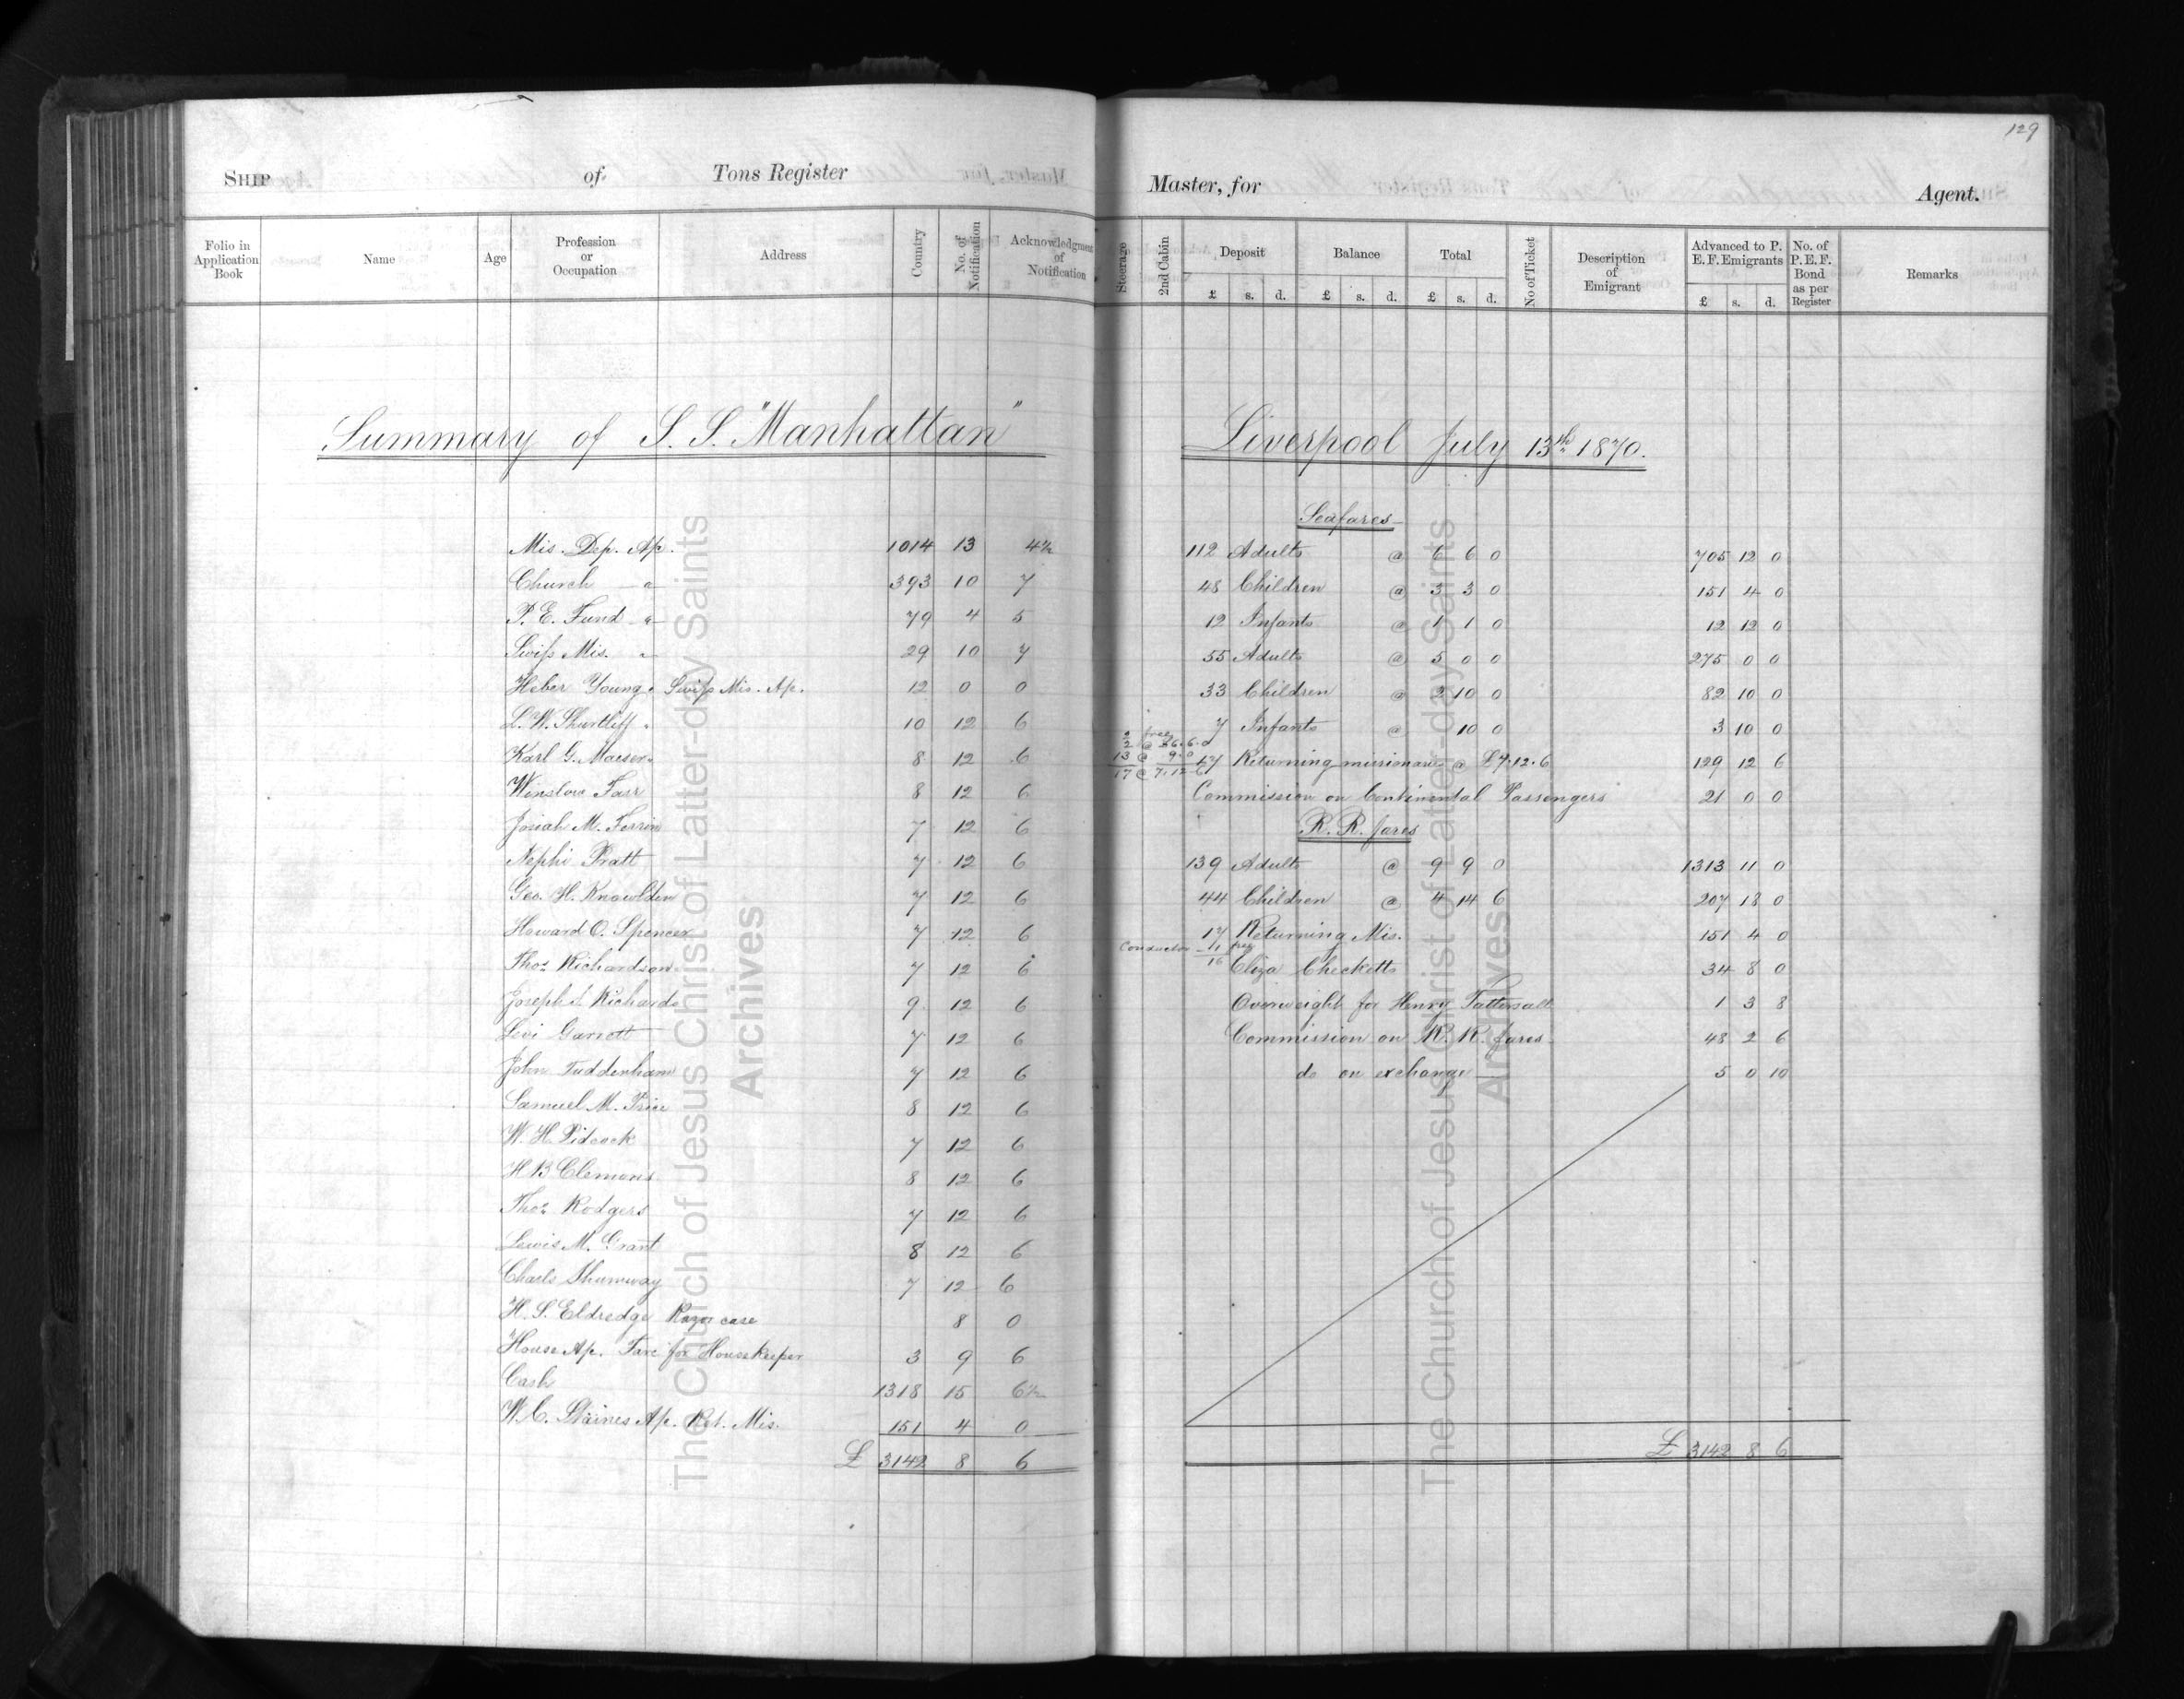 129
SHIP of Tons Register
Folio in Application Book
Name
Age
Profession or Occupation
Address
Country
No. of Notification
Acknowledgment of Notification
Summary of S. S. "Manhattan"
Mis. Dep. Ap. 1014 13 4½
Church " 393 10 7
P. E. Fund " 79 4 5
Swiss Mis. " 29 10 7
Heber Young " Swiss Mis. Ap. 12 0 0
L. W. Shurtliff " 10 12 6
Karl G. Maeser " 8 12 6
Winslow Farr 8 12 6
Josiah M. Ferrin 7 12 6
Nephi Pratt 7 12 6
Geo. H. Knowlden 7 12 6
Howard O. Spencer 7 12 6
Thos. Richardson 7 12 6
Joseph S. Richards 9 12 6
Levi Garrett 7 12 6
John Tuddenham 7 12 6
Samuel M. Price 8 12 6
W. H. Pidcock 7 12 6
H B Clemons 8 12 6
Thos. Rodgers 7 12 6
Lewis M. Grant 8 12 6
Charls Shumway 7 12 6
H. S. Eldredge Razor case 8 0
House Ap. Fare for Housekeeper 3 9 6
Cash 1318 15 6½
W. C. Staines Ap. Ret. Mis. 151 4 0
£ 3142 8 6
Master, for Agent.
Steerage
2nd Cabin
Deposit £ s. d.
Balance £ s. d.
Total £ s. d.
No of Ticket
Description of Emigrant
Advanced to P. E. F. Emigrants £ s. d.
No. of P. E. F. Bond as per Register
Remarks
Liverpool July 13th 1870.
Seafares
112 Adults @ 6 6 0 705 12 0
48 Children @ 3 3 0 151 4 0
12 Infants @ 1 1 0 12 12 0
55 Adults @ 5 0 0 275 0 0
33 Children @ 2 10 0 82 10 0
7 Infants @ 10 0 3 10 0
2 free
2 @ £6.6.0
13 @ 9.0
17 @ 7.12.6
17 Returning missionaries @ £7.12.6 129 12 6
Commission on Continental Passengers 21 0 0
R. R. fares
139 Adults @ 9 9 0 1313 11 0
44 Children @ 4 14 6 207 18 0
17 Returning Mis. 151 4 0
Conductor 1 free
16
Eliza Checketts 34 8 0
Overweight for Henry Tattersall 1 3 8
Commission on R. R. fares 48 2 6
do on exchange 5 0 10
£ 3142 8 6
The Church of Jesus Christ of Latter-day Saints
Archives
The Church of Jesus Christ of Latter-day Saints
Archives